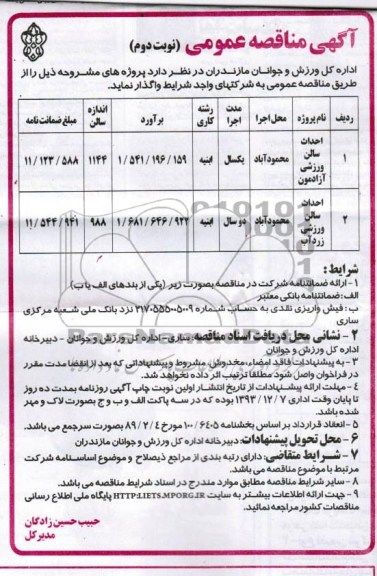 آگهی مناقصه عمومی (نوبت دوم)
اداره کل ورزش و جوانان مازندران در نظر دارد پروژه های مشروحه ذیل را از
طریق مناقصه عمومی به شرکتهای واجد شرایط واگذار نماید.
ردیف نام پروژه محل اجرا مدت اجرا رشته کاری برآورد اندازه سالن مبلغ ضمانت نامه
۱ احداث سالن ورزشی آزادمون محمودآباد یکسال ابنیه ۱/۵۴۱/۱۹۶/۱۵۹ ۱۱۴۴ ۱۱/۱۲۳/۵۸۸
۲ احداث سالن ورزشی زردآب محمودآباد دو سال ابنیه ۱/۶۸۱/۶۴۶/۹۲۲ ۹۸۸ ۱۱/۵۴۴/۹۴۱
شرایط:
۱- ارائه ضمانتنامه شرکت در مناقصه بصورت زیر (یکی از بندهای الف یا ب)
الف: ضمانتنامه بانکی معتبر
ب: فیش واریزی نقدی به حساب شماره ۲۱۷۰۵۵۵۰۰۵۰۰۹ نزد بانک ملی شعبه مرکزی
ساری
۲- نشانی محل دریافت اسناد مناقصه: ساری- اداره کل ورزش و جوانان - دبیرخانه
اداره کل ورزش و جوانان
۳- به پیشنهادات فاقد امضاء، مخدوش، مشروط و پیشنهاداتی که بعد از انقضا مدت مقرر
در فراخوان واصل شود مطلقا ترتیب اثر داده نخواهد شد.
۴- مهلت ارائه پیشنهادات از تاریخ انتشار اولین نوبت چاپ آگهی روزنامه بمدت ده روز
تا پایان وقت اداری ۷ / ۱۲ / ۱۳۹۳ بوده که در سه پاکت الف و ب و ج بصورت لاک و مهر
شده باشد.
۵- انعقاد قرارداد بر اساس بخشنامه ۱۰۰/۶۴۰۵ مورخ ۸۹/۲/۴ بصورت سرجمع می باشد.
۶- محل تحویل پیشنهادات: دبیرخانه اداره کل ورزش و جوانان مازندران
۷- شرایط متقاضی: دارای رتبه بندی از مراجع ذیصلاح و موضوع اساسنامه شرکت
مرتبط با موضوع مناقصه می باشد.
۸- سایر شرایط مناقصه مطابق موارد مندرج در اسناد شرایط مناقصه می باشد.
۹- جهت ارائه اطلاعات بیشتر به سایت HTTP:IETS.MPORG.IR پایگاه ملی اطلاع رسانی
مناقصات کشور مراجعه نمائید.
حبیب حسین زادگان
مدیر کل